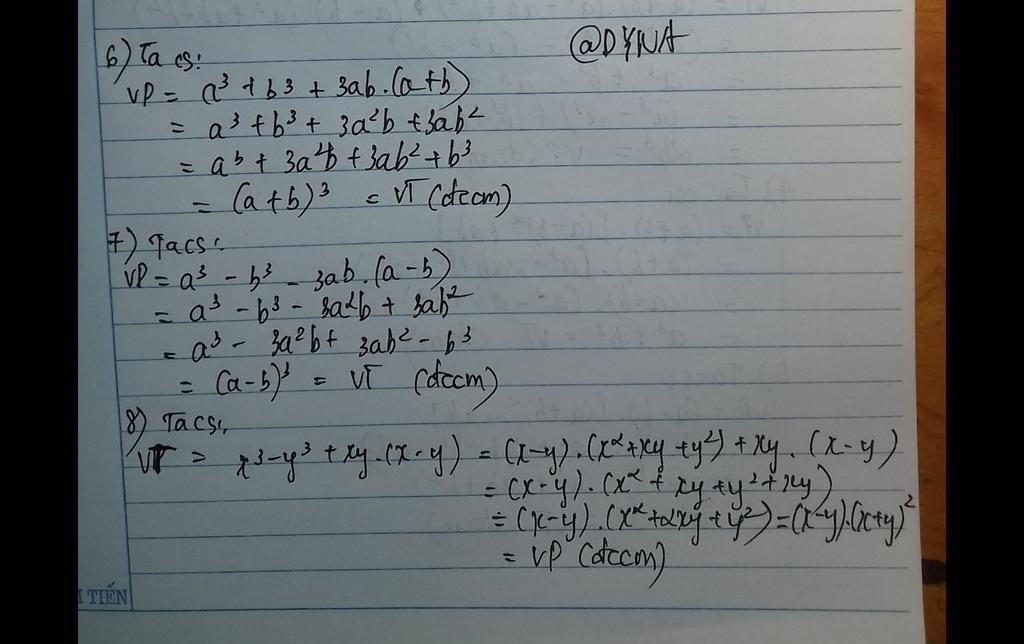 @DYNA
6) Ta có:
VP = a³ + b³ + 3ab.(a+b)
= a³ + b³ + 3a²b + 3ab²
= a³ + 3a²b + 3ab² + b³
= (a+b)³ = VT (đccm)
7) Ta có:
VP = a³ - b³ - 3ab.(a-b)
= a³ - b³ - 3a²b + 3ab²
= a³ - 3a²b + 3ab² - b³
= (a-b)³ = VT (đccm)
8) Ta có:
VT = x³-y³ + xy.(x-y) = (x-y).(x²+xy+y²) + xy.(x-y)
= (x-y).(x² + xy + y² + xy)
= (x-y).(x²+2xy+y²) = (x-y).(x+y)²
= VP (đccm)
TIẾN